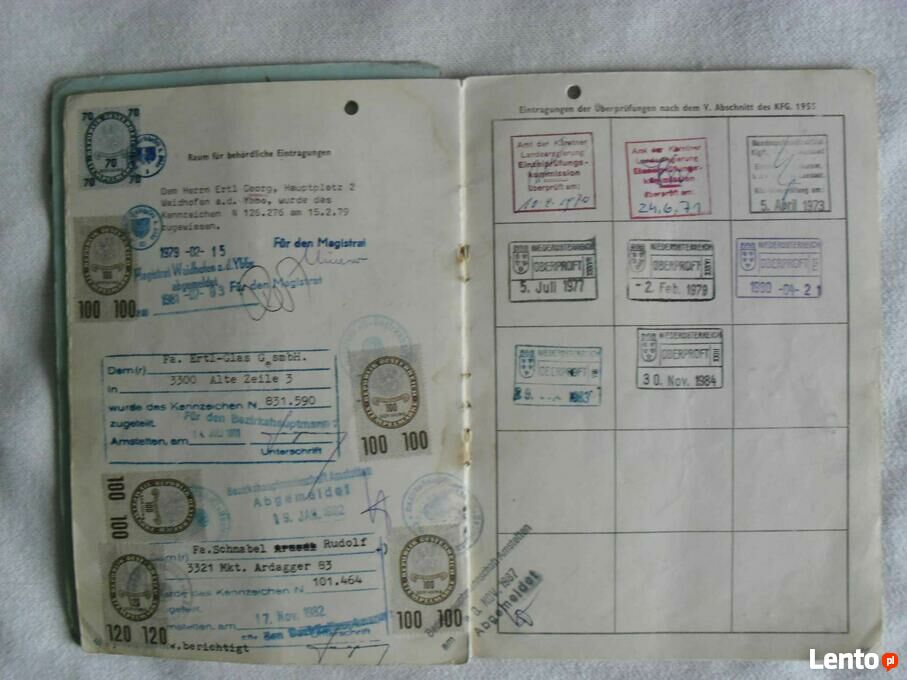 70 70
REPUBLIK OESTERREICH
70
70 70
Raum für behördliche Eintragungen
Dem Herrn Ertl Georg, Hauptplatz 2
Waidhofen a.d. Ybbs, wurde das
Kennzeichen N 126.276 am 15.2.79
zugewiesen.
1979 -02- 15
Für den Magistrat
Magistrat Waidhofen a.d. Ybbs
abgemeldet
Für den Magistrat
100
100 100
Fa. Ertl-Glas GesmbH.
Dem(r)
3300 Alte Zeile 3
in
wurde das Kennzeichen N 831.590
zugeteilt.
Für den Bezirkshauptmann
Amstetten, am
Unterschrift
REPUBLIK OESTERREICH
100
100 100
Bezirkshauptmannschaft Amstetten
Abgemeldet
19. JAN. 1982
100 100
Fa. Schnabel Rudolf
Dem(r)
3321 Mkt. Ardagger 83
in
wurde das Kennzeichen N 101.464
zugeteilt.
Amstetten, am 17. Nov. 1982
Für den Bezirkshauptmann
Unterschrift
120 120
100 100
w.berichtigt
Eintragungen der Überprüfungen nach dem V. Abschnitt des KFG. 1955
Amt der Kärntner
Landesregierung
Einzelprüfungs-
kommission
Überprüft am:
Amt der Kärntner
Landesregierung
Einzelprüfungs-
kommission
Überprüft am:
24.6.71
5. April 1973
NIEDERÖSTERREICH
ÜBERPRÜFT
5. Juli 1977
NIEDERÖSTERREICH
ÜBERPRÜFT
-2. Feb. 1979
NIEDERÖSTERREICH
ÜBERPRÜFT
1980 -04- 21
NIEDERÖSTERREICH
ÜBERPRÜFT
NIEDERÖSTERREICH
ÜBERPRÜFT
30. Nov. 1984
Bezirkshauptmannschaft Amstetten
am
NOV. 1987
Abgemeldet
Lento.pl